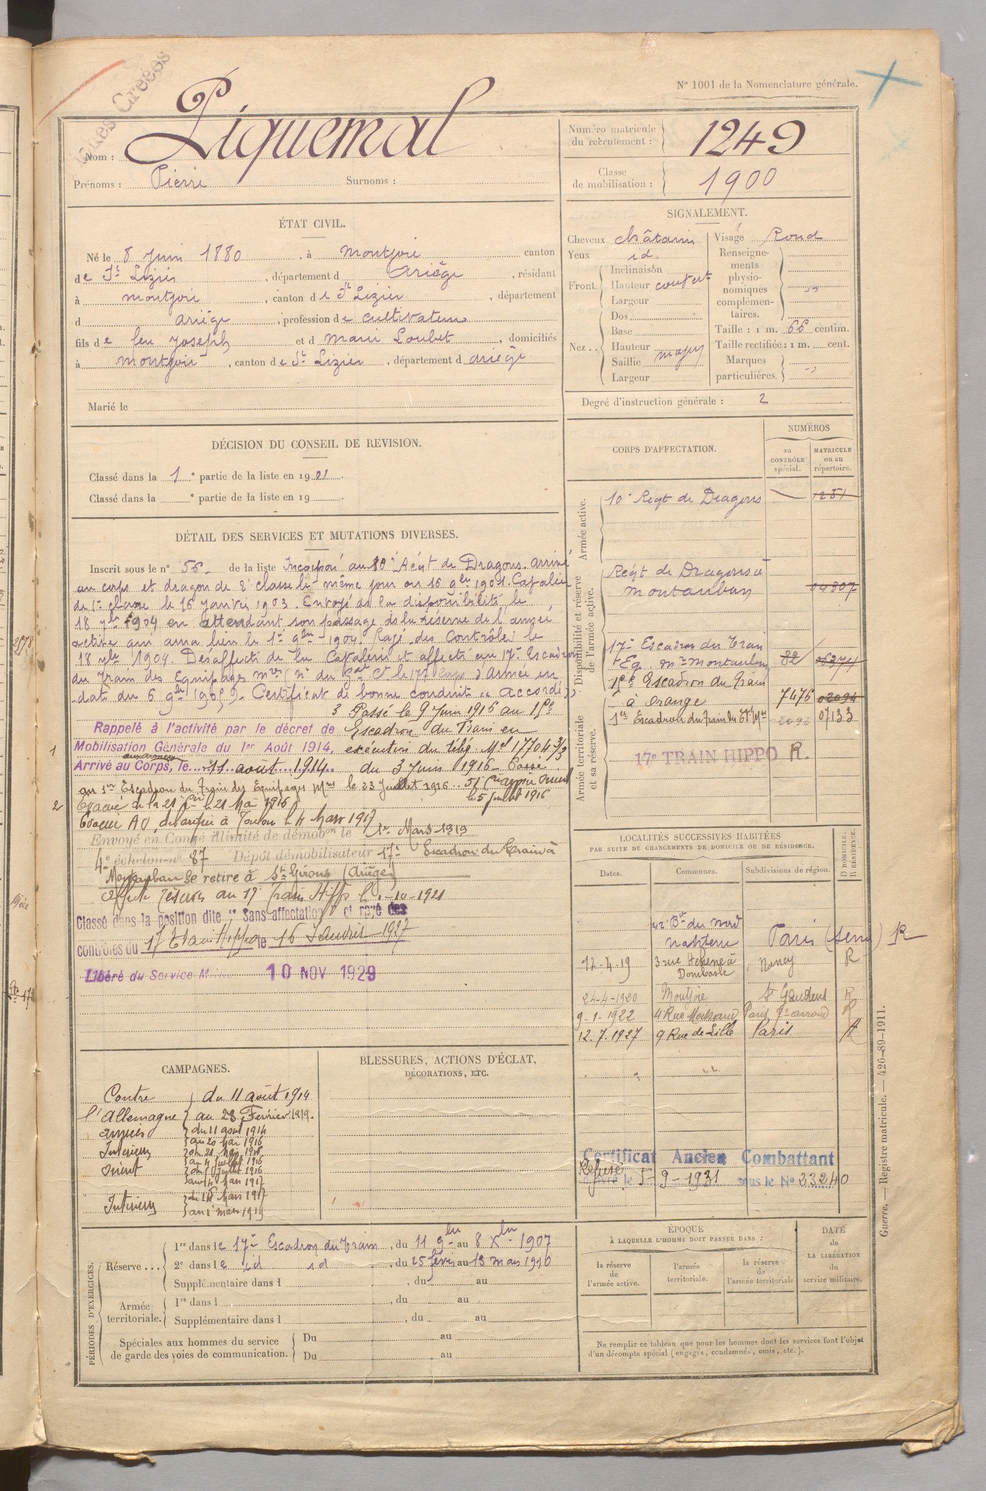 N° 1001 de la Nomenclature générale.
Nom : Piquemal
Prénoms : Pierre Surnoms :
Numéro matricule du recrutement : 1249
Classe de mobilisation : 1900
ÉTAT CIVIL.
Né le 8 Juin 1880, à Montjoie canton
de St Lizier, département d Ariège, résidant
à Montjoie, canton de St Lizier, département
d Ariège, profession de cultivateur
fils de feu Joseph et d Marie Loubet, domiciliés
à Montjoie, canton de St Lizier, département d Ariège
Marié le
SIGNALEMENT.
Cheveux châtain
Yeux id.
Front. Inclinaison
Hauteur couvert
Largeur
Nez.. Dos
Base
Hauteur
Saillie moyen
Largeur
Visage Rond
Renseignements physionomiques complémentaires.
Taille : 1 m. 66 centim.
Taille rectifiée : 1 m. cent.
Marques particulières.
Degré d'instruction générale : 2
DÉCISION DU CONSEIL DE REVISION.
Classé dans la 1 e partie de la liste en 1901.
Classé dans la e partie de la liste en 19
DÉTAIL DES SERVICES ET MUTATIONS DIVERSES.
Inscrit sous le n° 56 de la liste Incorporé au 10e Régt de Dragons. Arrivé
au corps et dragon de 2e classe le même jour 16 9bre 1901. Cavalier
de 1e classe le 16 janvier 1903. Envoyé dans la disponibilité le
18 7bre 1904 en attendant son passage dans la réserve de l'armée
active qui aura lieu le 1er 9bre 1904. Rayé des Contrôles le
18 7bre 1904. Désaffecté de la Cavalerie et affecté au 17e Escadron
du Train des Equipages mres
date du 6 9bre Certificat de bonne conduite "Accordé"
3 Passé le 9 Juin 1916 au 15e
Rappelé à l'activité par le décret de Escadron du Train en
Mobilisation Générale du 1er Août 1914, exécution du télég. Mel 17704 3/3
aux armées
Arrivé au Corps, le 11 août 1914. du 3 Juin 1916. Passé
au 1er Escadron du Train des Equipages Mres
Evacué le 21 Mai 1916 le 5 Juillet 1916
Evacué AO, débarqué à Toulon le 4 Mars 1917
Envoyé en Congé illimité de démob on le 1er Mars 1919
4e échelon n° 87 Dépôt démobilisateur 17e Escadron du Train à
Montauban Se retire à St Girons (Ariège)
Affecté réserve au 17 Train Hippo le 1-10-1921
Classé dans la position dite "Sans affectation" et rayé des
contrôles du 17 Train Hippo le 16 Janvier 1927
Libéré du Service M. 10 NOV 1929
CORPS D'AFFECTATION.
NUMÉROS
au contrôle spécial.
matricule ou au répertoire.
Armée active.
10e Régt de Dragons
Disponibilité et réserve de l'armée active.
Régt de Dragons à Montauban
17e Escadron du Train
Eq. mres Montauban 82
Armée territoriale et sa réserve.
15e Escadron du Train
à Orange 7476
1er Escadron du Train des Eq. Mres
17e TRAIN HIPPO R.
LOCALITÉS SUCCESSIVES HABITÉES
PAR SUITE DE CHANGEMENTS DE DOMICILE OU DE RÉSIDENCE.
Dates. Communes. Subdivisions de région. D DOMICILE. R RÉSIDENCE.
42 Bd du Nord Nanterre Paris (Seine) R
12.4.19 3 rue Hélène à Dombasle Nancy R
24-4-1920 Montjoie St Gaudens R
9-1-1922 4 Rue
12.7.1927 9 Rue de Lille Paris
CAMPAGNES.
Contre l'Allemagne du 11 août 1914
au 28 Février 1919.
Armées du 11 août 1914
au 20 Mai 1916
Intérieur du 21 Mai 1916
au 4 Juillet 1916
Orient du 5 Juillet 1916
Intérieur
au 1 mars 1919
BLESSURES, ACTIONS D'ÉCLAT,
DÉCORATIONS, ETC.
Certificat Ancien Combattant
Refusé le 5-9-1931 sous le N° 33240
PÉRIODES D'EXERCICES.
Réserve... 1re dans le 17e Escadron du Train, du 11 9bre au 8 Xbre 1907
2e dans le id id, du 25 février au 13 mars 1910
Supplémentaire dans l , du au
Armée territoriale. 1re dans l , du au
Supplémentaire dans l , du au
Spéciales aux hommes du service de garde des voies de communication. Du au
Du au
ÉPOQUE
À LAQUELLE L'HOMME DOIT PASSER DANS :
la réserve de l'armée active.
l'armée territoriale.
la réserve de l'armée territoriale
DATE de LA LIBÉRATION du service militaire.
Ne remplir ce tableau que pour les hommes dont les services font l'objet d'un décompte spécial (engagés, condamnés, omis, etc.).
Guerre. — Registre matricule. — 426-89-1911.